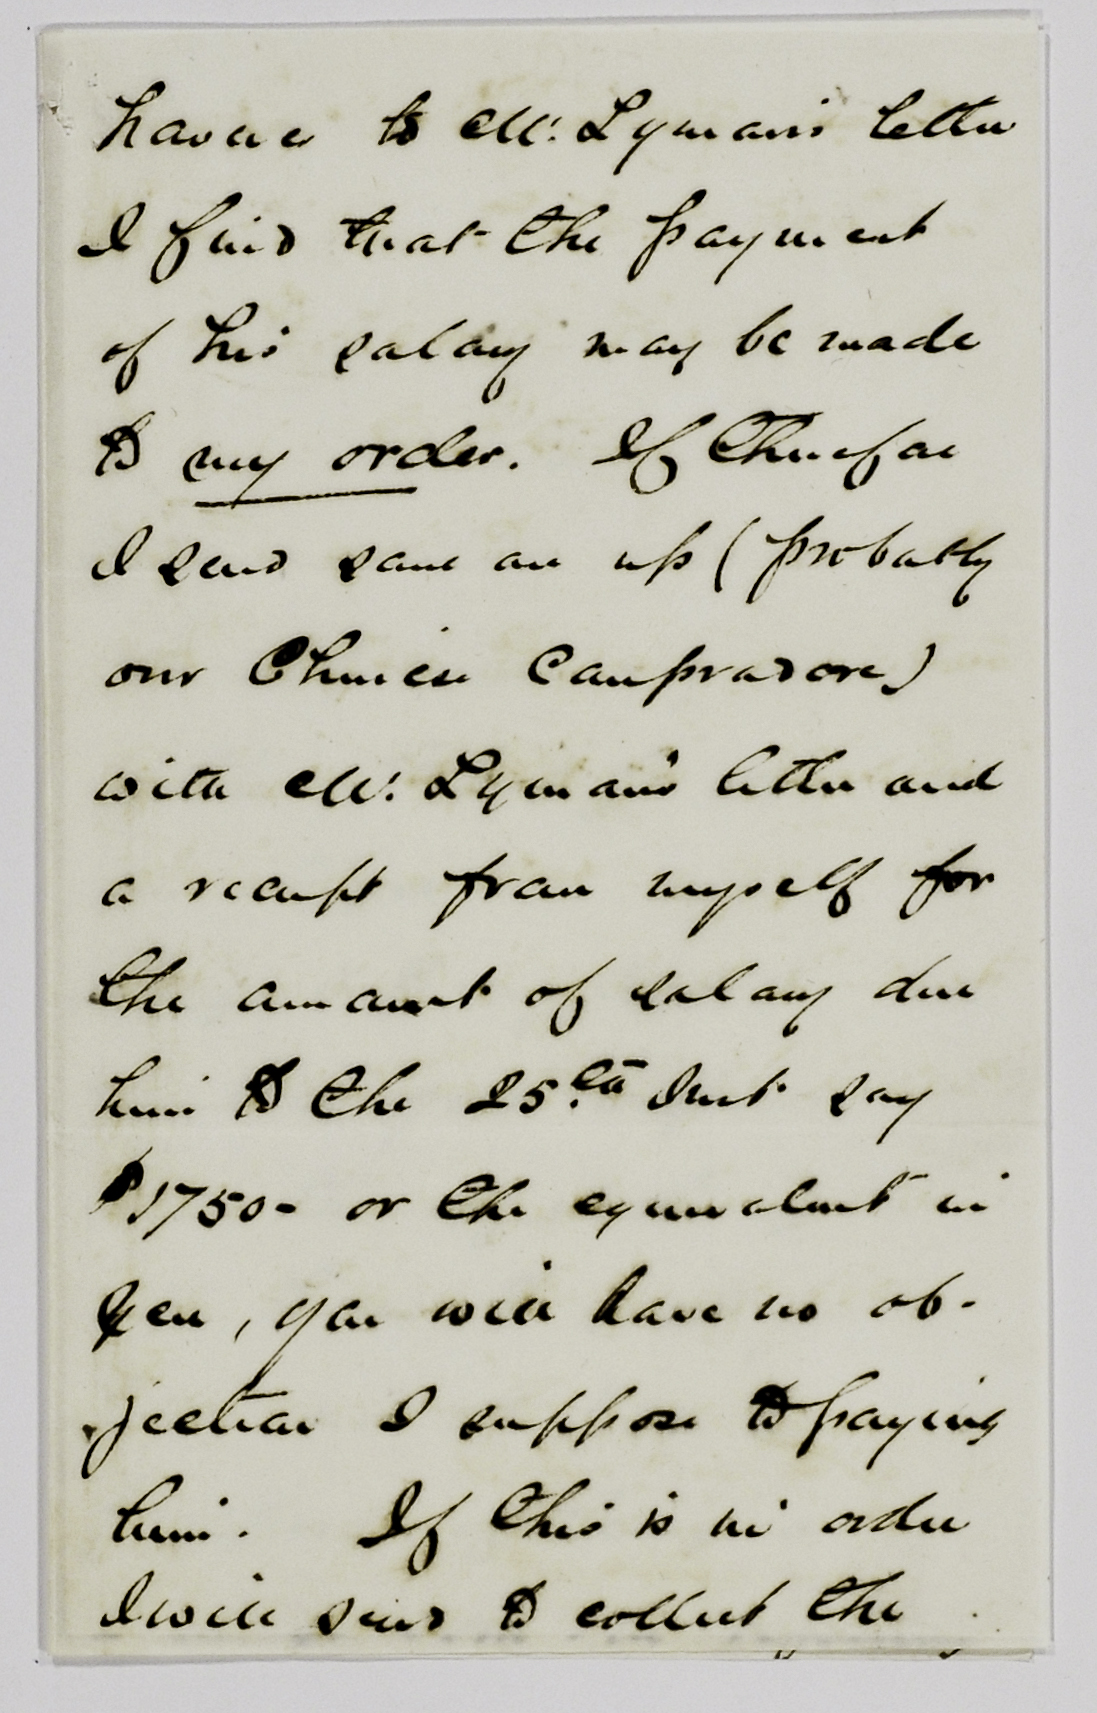 to Mr. Lyman's letter
I find that the payment
of his salary may be made
to my order. If therefore
I send some one up (probably
our Chinese Compradore)
with Mr. Lyman's letter and
a receipt from myself for
the amount of salary due
him to the 25th Inst say
$1750- or the equivalent in
Yen, you will have no ob-
jection I suppose to paying
him. If this is in order
I will send to collect the